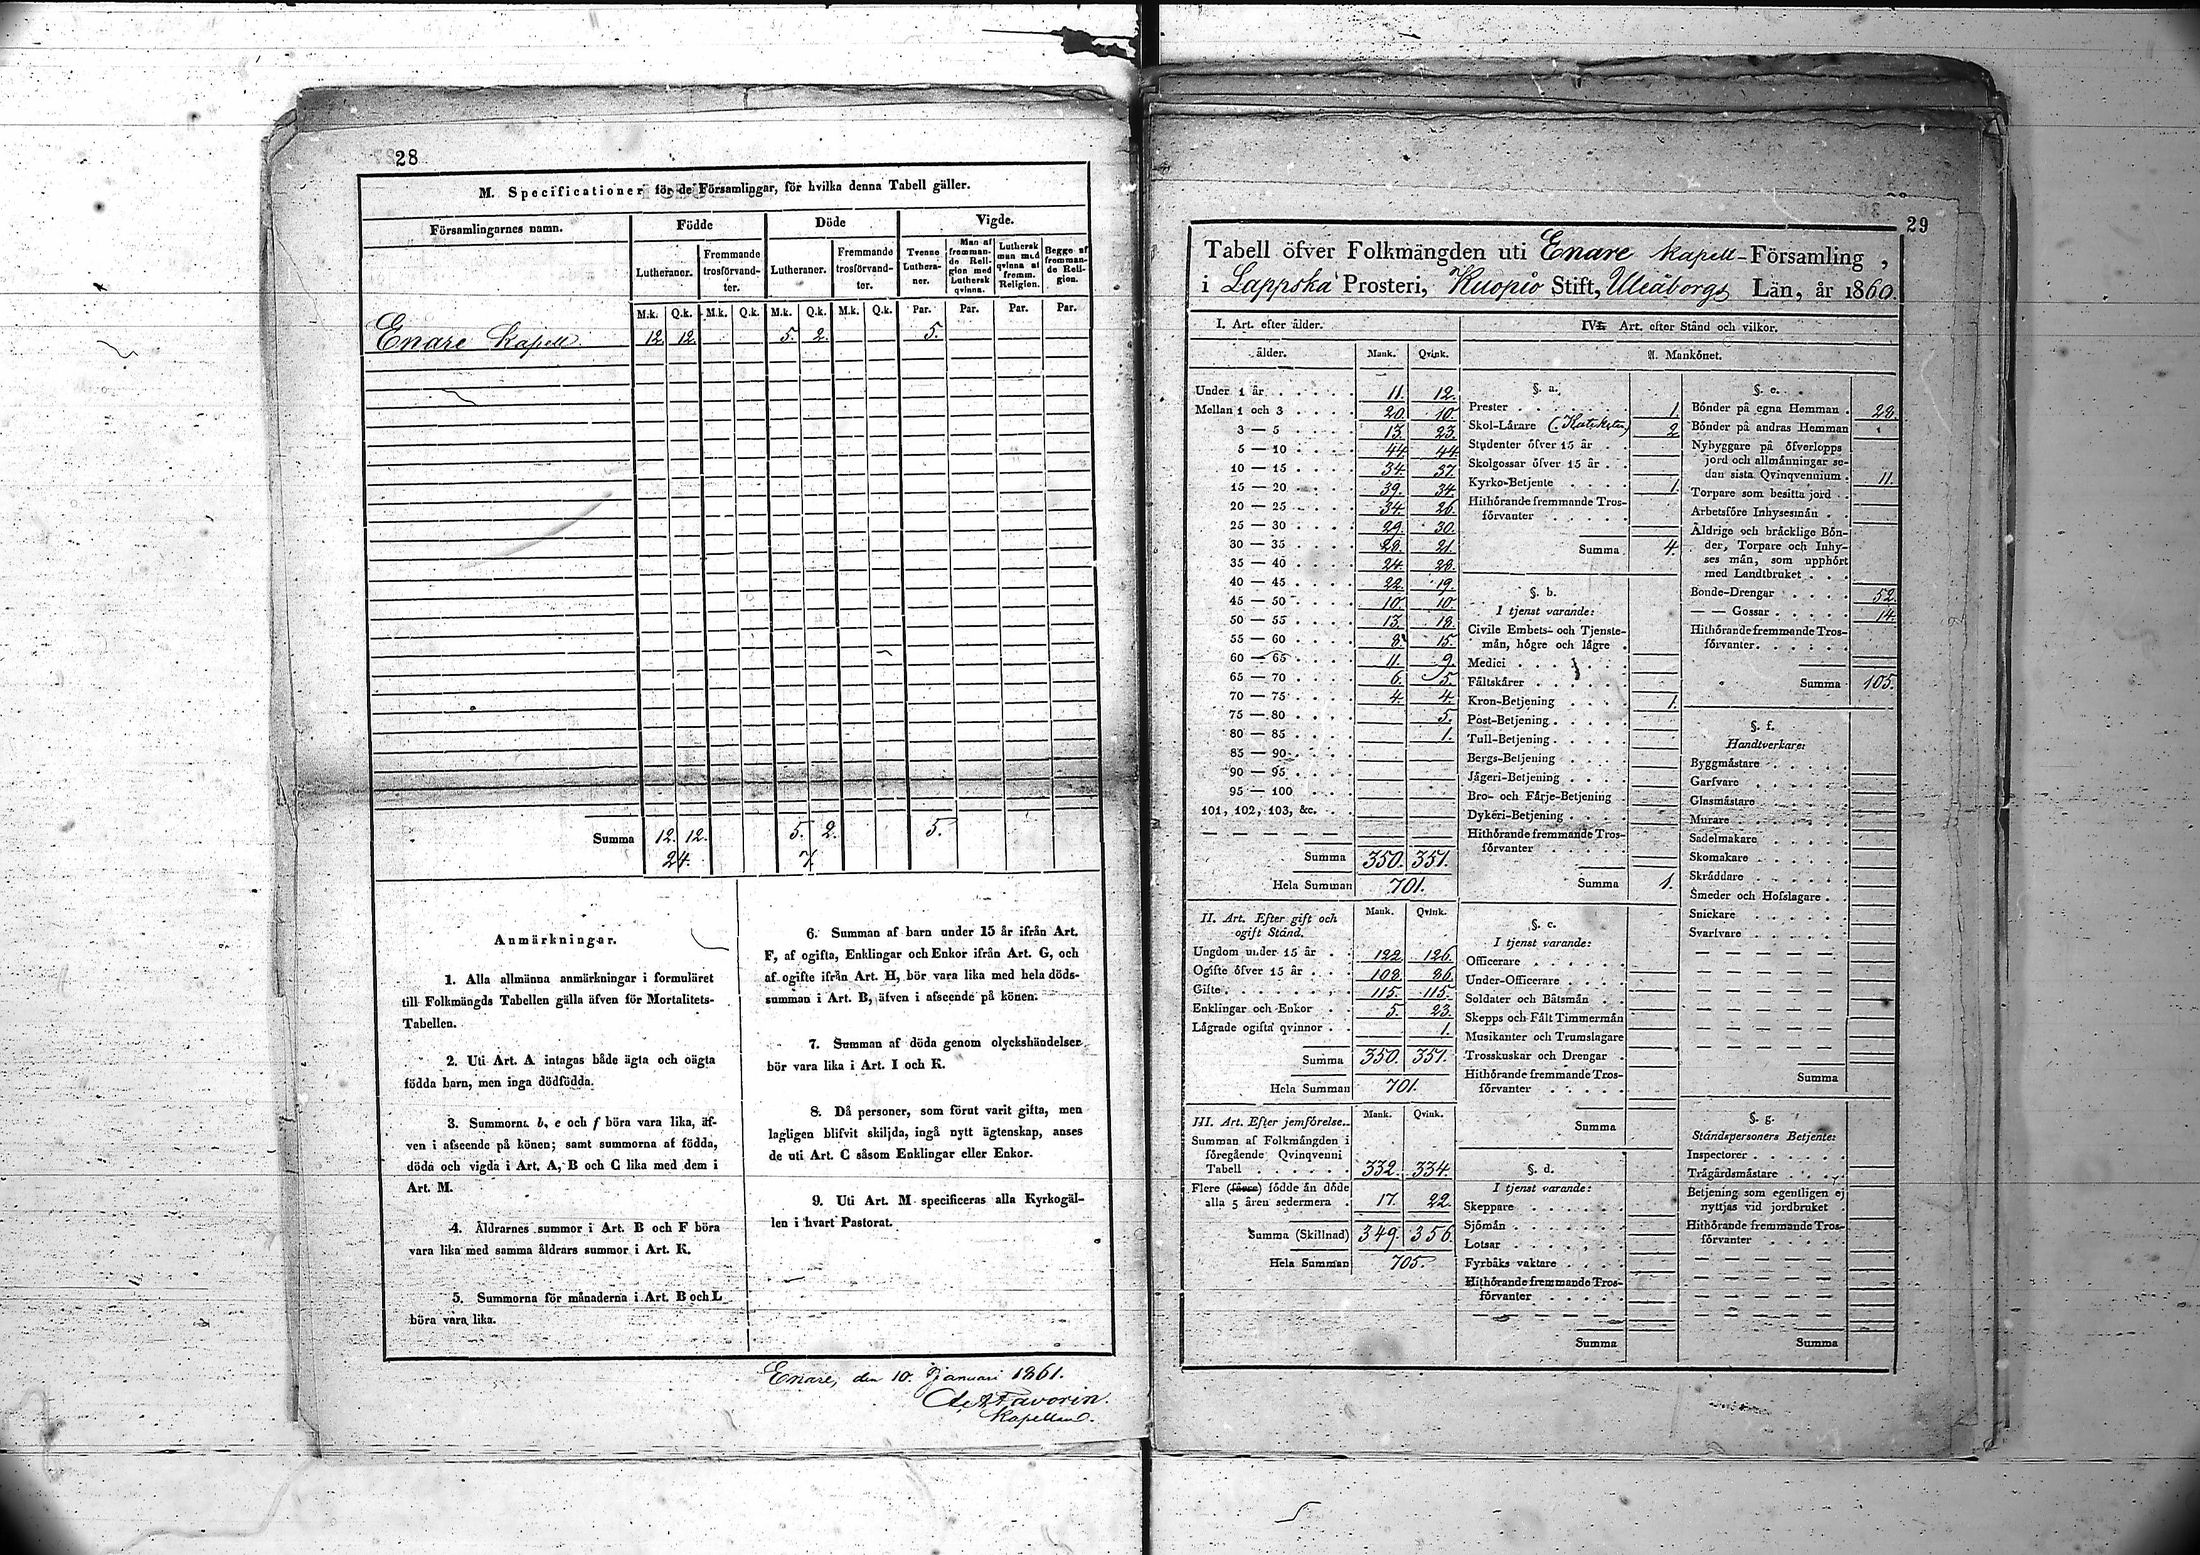 28
M. Specificationer för de Församlingar, för hvilka denna Tabell gäller.
Församlingarnes namn.
Födde
Döde
Vigde.
Lutheraner.
Fremmande trosförvand-ter.
Lutheraner.
Fremmande trosförvand-ter.
Tvenne Luthera-ner.
Man af fremman-de Reli-gion med Luthersk qvinna.
Luthersk man med qvinna af fremm. Religion.
Begge af fremman-de Reli-gion.
M.k. Q.k. M.k. Q.k. M.k. Q.k. M.k. Q.k. Par. Par. Par. Par.
Enare Kapell 12. 12. 5. 2. 5.
Summa 12. 12. 5. 2. 5.
24. 7.
Anmärkningar.
1. Alla allmänna anmärkningar i formuläret
till Folkmängds Tabellen gälla äfven för Mortalitets-
Tabellen.
2. Uti Art. A intagas både ägta och oägta
födda barn, men inga dödfödda.
3. Summorna b, e och f böra vara lika, äf-
ven i afseende på könen; samt summorna af födda,
döda och vigda i Art. A, B och C lika med dem i
Art. M.
4. Åldrarnes summor i Art. B och F böra
vara lika med samma åldrars summor i Art. K.
5. Summorna för månaderna i Art. B och L
böra vara lika.
6. Summan af barn under 15 år ifrån Art.
F, af ogifta, Enklingar och Enkor ifrån Art. G, och
af ogifte ifrån Art. H, bör vara lika med hela döds-
summan i Art. B, äfven i afseende på könen.
7. Summan af döda genom olyckshändelser
bör vara lika i Art. I och K.
8. Då personer, som förut varit gifta, men
lagligen blifvit skiljda, ingå nytt ägtenskap, anses
de uti Art. C såsom Enklingar eller Enkor.
9. Uti Art. M specificeras alla Kyrkogäl-
len i hvart Pastorat.
Enare, den 10. Januari 1861.
Favorin.
Kapellan.
29
Tabell öfver Folkmängden uti Enare Kapell-Församling,
i Lappska Prosteri, Kuopio Stift, Uleåborgs Län, år 1860.
I. Art. efter ålder.
ålder. Mank. Qvink.
Under 1 år 11. 12.
Mellan 1 och 3 20. 10.
3 — 5 13. 23.
5 — 10 44. 44
10 — 15 34. 37.
15 — 20 39. 34.
20 — 25 34. 26.
25 — 30 29. 30.
30 — 35 28. 21.
35 — 40 24. 28.
40 — 45 22. 19.
45 — 50 10. 10.
50 — 55 13. 18.
55 — 60 8. 15.
60 — 65 11. 9.
65 — 70 6. 5.
70 — 75 4. 4.
75 — 80 5.
80 — 85 1.
85 — 90
90 — 95
95 — 100
101, 102, 103, &c.
Summa 350. 351.
Hela Summan 701.
II. Art. Efter gift och
ogift Stånd. Mank. Qvink.
Ungdom under 15 år 122. 126.
Ogifte öfver 15 år 108. 86.
Gifte 115. 115.
Enklingar och Enkor 5. 23.
Lägrade ogifta qvinnor 1.
Summa 350. 351.
Hela Summan 701.
III. Art. Efter jemförelse. Mank. Qvink.
Summan af Folkmängden i
föregående Qvinqvenni
Tabell 332. 334.
Flere (färre) födde än döde
alla 5 åren sedermera 17. 22.
Summa (Skillnad) 349. 356.
Hela Summan 705.
IV. Art. efter Stånd och vilkor.
A. Mankönet.
§. a.
Prester 1.
Skol-Lärare (Katiketer) 2.
Studenter öfver 15 år
Skolgossar öfver 15 år
Kyrko-Betjente 1.
Hithörande fremmande Tros-
förvanter
Summa 4.
§. b.
I tjenst varande:
Civile Embets- och Tjenste-
män, högre och lägre
Medici
Fältskärer
Kron-Betjening 1.
Post-Betjening
Tull-Betjening
Bergs-Betjening
Jägeri-Betjening
Bro- och Färje-Betjening
Dykeri-Betjening
Hithörande fremmande Tros-
förvanter
Summa 1.
§. c.
I tjenst varande:
Officerare
Under-Officerare
Soldater och Båtsmän
Skepps och Fält Timmermän
Musikanter och Trumslagare
Trosskuskar och Drengar
Hithörande fremmande Tros-
förvanter
Summa
§. d.
I tjenst varande:
Skeppare
Sjömän
Lotsar
Fyrbåks vaktare
Hithörande fremmande Tros-
förvanter
Summa
§. e.
Bönder på egna Hemman 28.
Bönder på andras Hemman
Nybyggare på öfverlopps
jord och allmänningar se-
dan sista Qvinqvennium 11.
Torpare som besitta jord
Arbetsföre Inhysesmän
Åldrige och bräcklige Bön-
der, Torpare och Inhy-
ses män, som upphört
med Landtbruket
Bonde-Drengar 52.
— — Gossar 14.
Hithörande fremmande Tros-
förvanter
Summa 105.
§. f.
Handtverkare:
Byggmästare
Garfvare
Glasmästare
Murare
Sadelmakare
Skomakare
Skräddare
Smeder och Hofslagare
Snickare
Svarfvare
Summa
§. g.
Ståndspersoners Betjente:
Inspectorer
Trägårdsmästare
Betjening som egentligen ej
nyttjas vid jordbruket
Hithörande fremmande Tros-
förvanter
Summa